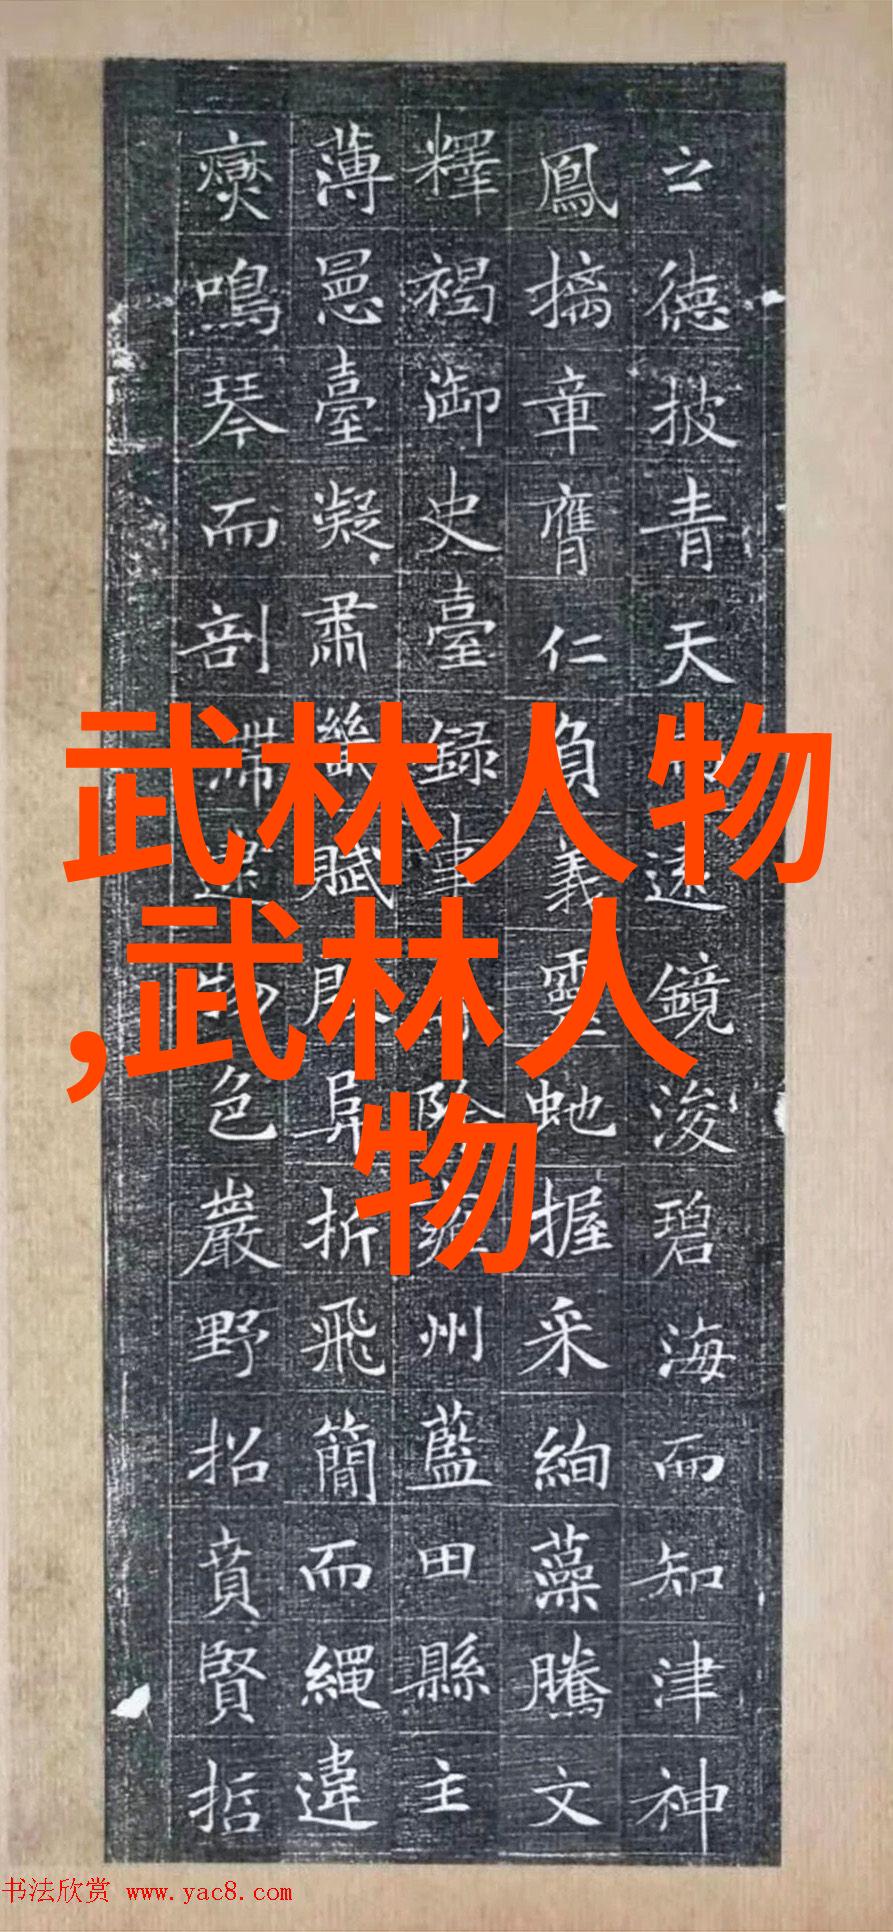 之德披青天遠鏡浚碧海而知津神
鳳摛章膺仁負義靈虵握采絢藻騰文
釋褐御史臺録事州藍田縣主
薄臺凝肅畿賦殷阜折飛簡而繩違
鳴琴而剖滯逮物色巖野招賁賢哲
武林人物
,武林人
物
书法欣赏 www.yac8.com